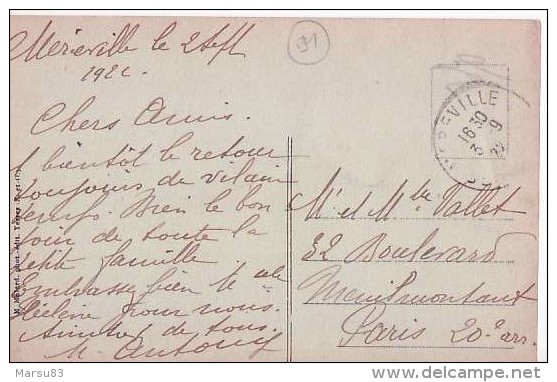 Méréville le 2 Sept
192
91
Chers Amis.
A bientôt le retour
toujours du vilain
temps. Bien le bon
jour de toute la
petite famille.
Embrasse bien le
Hélène pour nous.
Amitiés de tous.
M. Antony
MEREVILLE
16 30
3 9
Mr et Mme Vallet
32 Boulevard
Menilmontant
Paris 20e arr.
Marsu83
www.delcampe.net